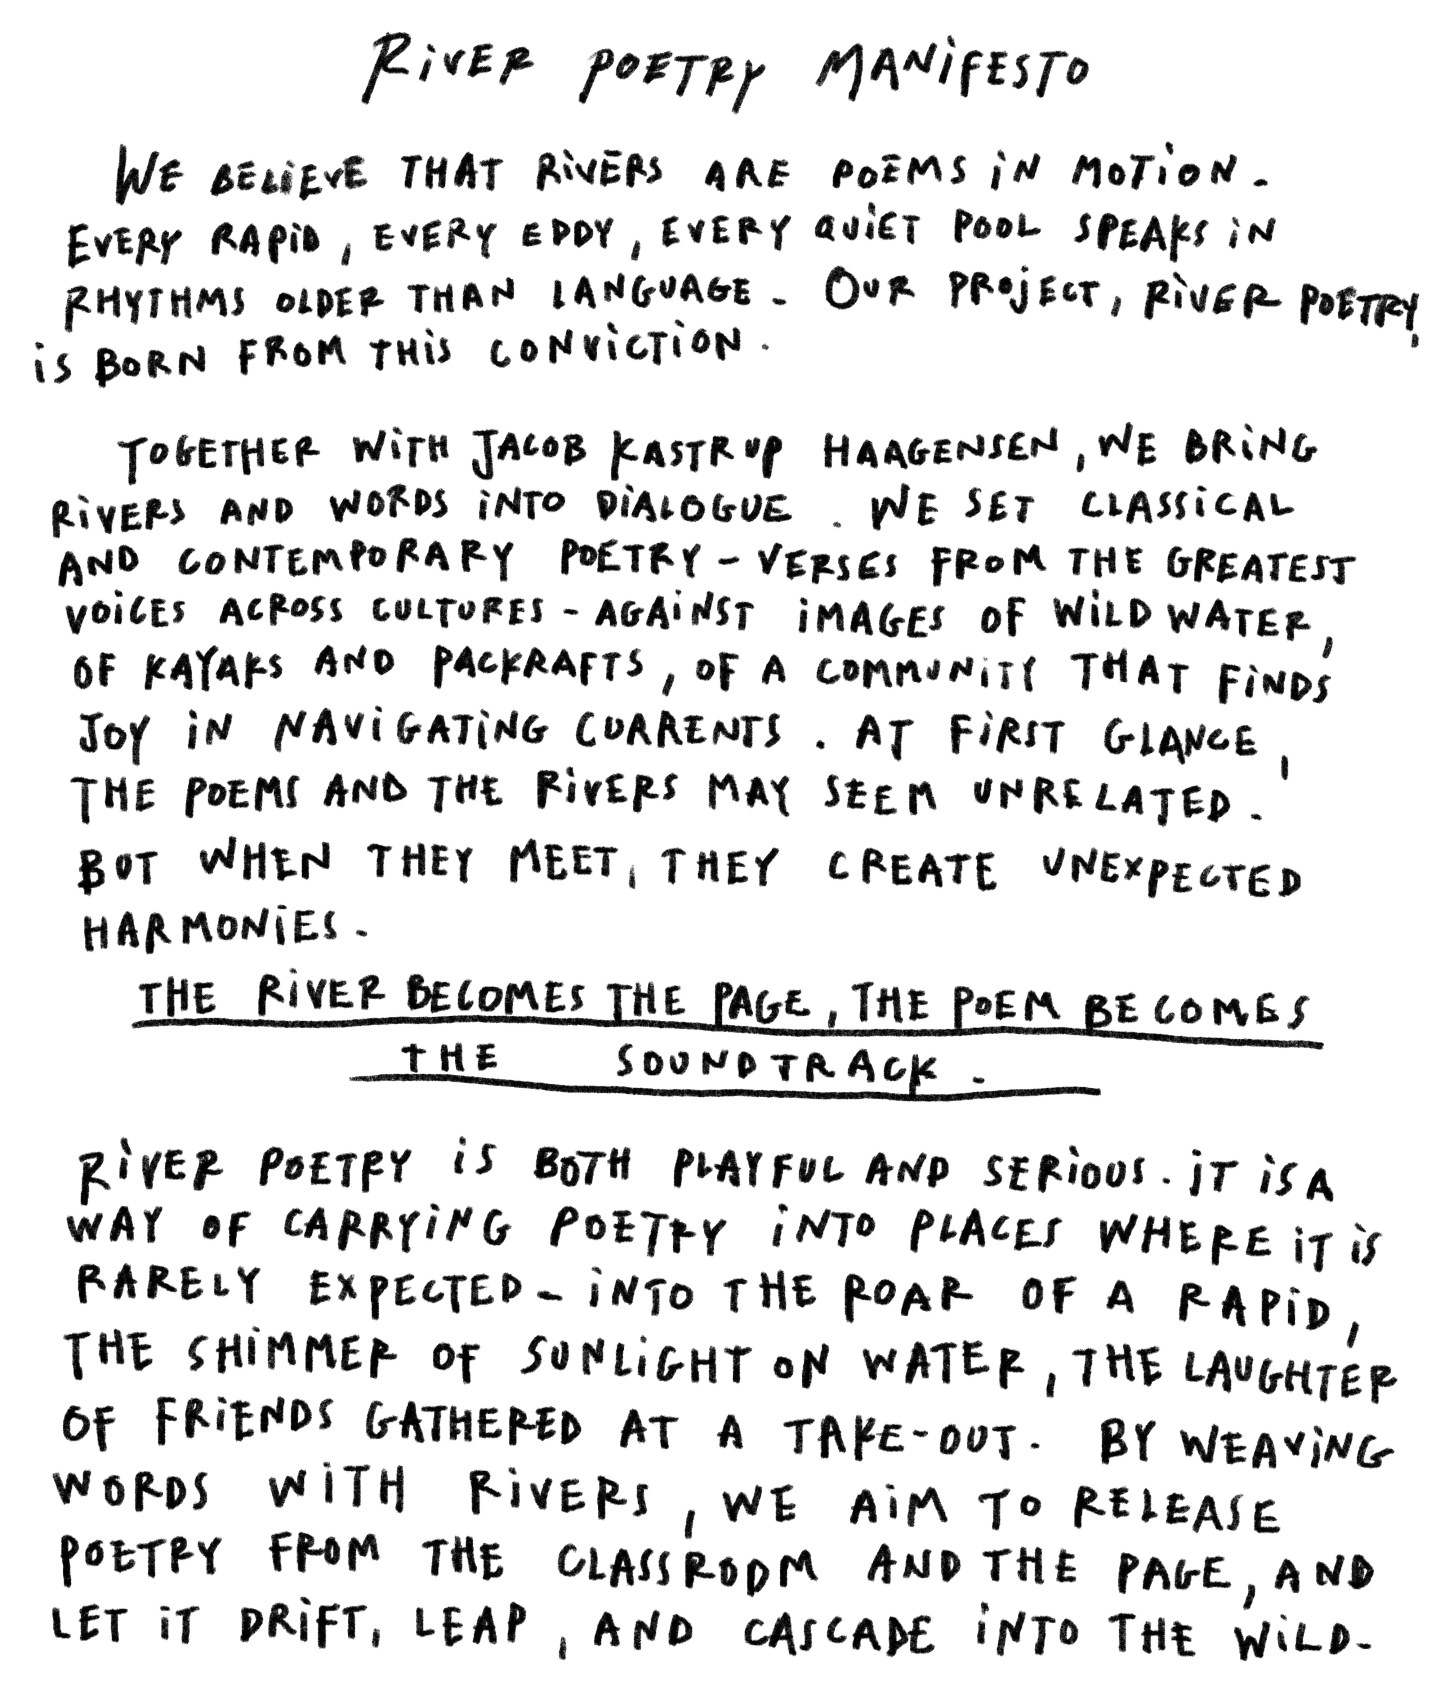 RiVER POETRY MANiFESTO
WE BELiEVE THAT RiVERS ARE POEMS iN MOTiON.
EVERY RAPiD, EVERY EDDY, EVERY QUiET POOL SPEAKS iN
RHYTHMS OLDER THAN LANGUAGE. OUR PROjECT, RiVER POETRY,
iS BORN FROM THiS CONViCTiON.
TOGETHER WiTH JACOB KASTRUP HAAGENSEN, WE BRiNG
RiVERS AND WORDS iNTO DiALOGUE. WE SET CLASSiCAL
AND CONTEMPORARY POETRY – VERSES FROM THE GREATEST
VOiCES ACROSS CULTURES – AGAiNST iMAGES OF WiLD WATER,
OF KAYAKS AND PACKRAFTS, OF A COMMUNiTY THAT FiNDS
JOY iN NAViGATiNG CURRENTS. AT FiRST GLANCE,
THE POEMS AND THE RiVERS MAY SEEM UNRELATED.
BUT WHEN THEY MEET, THEY CREATE UNEXPECTED
HARMONiES.
THE RiVER BECOMES THE PAGE, THE POEM BECOMES
THE SOUNDTRACK.
RiVER POETRY iS BOTH PLAYFUL AND SERiOUS. iT iS A
WAY OF CARRYiNG POETRY iNTO PLACES WHERE iT iS
RARELY EXPECTED – iNTO THE ROAR OF A RAPiD,
THE SHiMMER OF SUNLiGHT ON WATER, THE LAUGHTER
OF FRiENDS GATHERED AT A TAKE-OUT. BY WEAViNG
WORDS WiTH RiVERS, WE AiM TO RELEASE
POETRY FROM THE CLASSROOM AND THE PAGE, AND
LET iT DRiFT, LEAP, AND CASCADE iNTO THE WiLD.